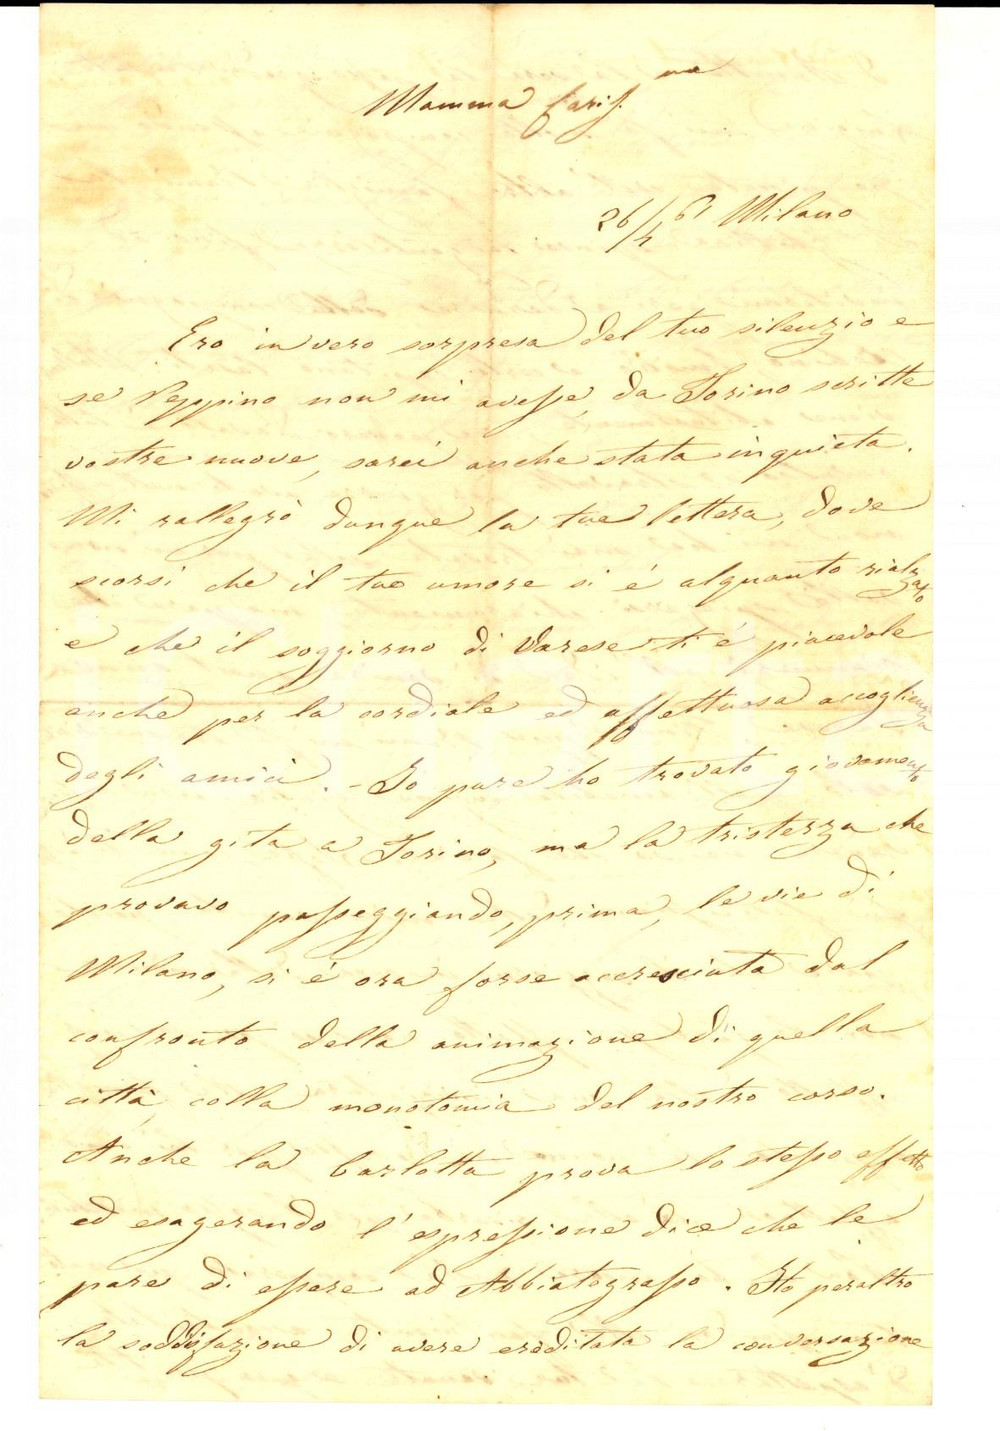 Mamma Cariss.ma
26/4 61 Milano
Ero in vero sorpresa del tuo silenzio e
se Peppino non mi avesse, da Torino scritte
vostre nuove, sarei anche stata inquieta.
Mi rallegrò dunque la tua lettera, dove
scorsi che il tuo umore si é alquanto rialzato
e che il soggiorno di Varese ti é piacevole
anche per la cordiale ed affettuosa accoglienza
degli amici. - Io pure ho trovato giovamento
della gita a Torino, ma la tristezza che
provavo passeggiando, prima, le vie di
Milano, si é ora forse accresciuta dal
confronto della animazione di quella
città, colla monotomia del nostro corso.
Anche la Carlotta prova lo stesso effetto
ed esagerando l'espressione dice che le
pare di essere ad Abbiategrasso. Ho peraltro
la soddisfazione di avere ereditata la conversazione